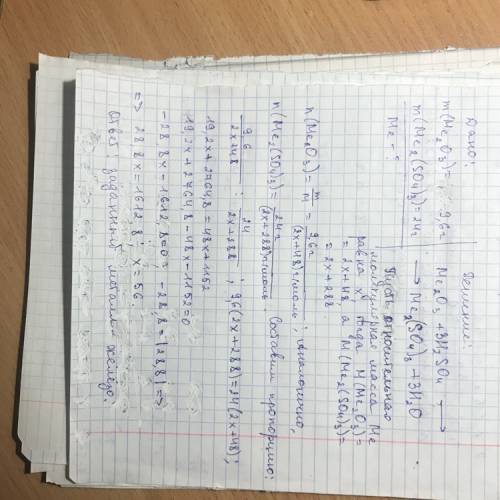 Дано:
m(Me₂O₃)= 9,6г
m(Me₂(SO₄)₃)=24г
Me - ?
Решение:
Me₂O₃ + 3H₂SO₄ ⟶
⟶ Me₂(SO₄)₃ + 3H₂O
Пусть относительная
молекулярная масса Me
равна x, тогда M(Me₂O₃)=
= 2x+48, а M(Me₂(SO₄)₃)=
= 2x+288
n(Me₂O₃) = m/M = 9,6г/(2x+48)г/моль; аналогично,
n(Me₂(SO₄)₃) = 24г/(2x+288)г/моль. Составим пропорцию:
9,6/2x+48 : 24/2x+288 ; 9,6(2x+288)=24(2x+48);
19,2x + 2764,8 = 48x + 1152
19,2x + 2764,8 - 48x - 1152 = 0
-28,8x - 1612,8 = 0; - 28,8 = |28,8| =>
=> 28,8x = 1612,8; x = 56.
Ответ: заданный металл - железо.